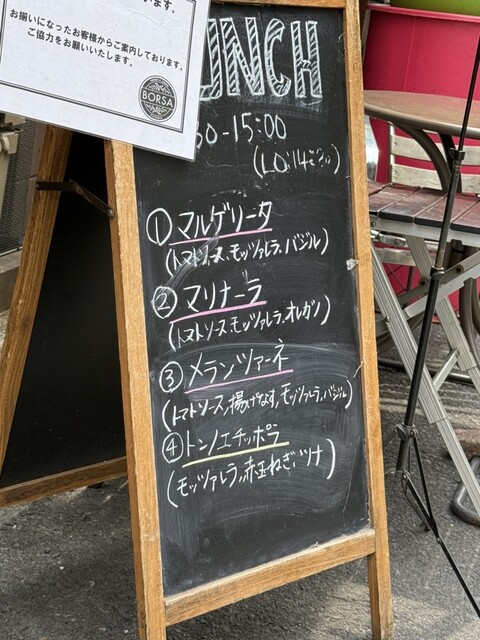 います。
お揃いになったお客様からご案内しております。
ご協力をお願いいたします。
BORSA
UNCH
30-15:00
(LO:14:30)
① マルゲリータ
(トマトソース、モッツァレラ、バジル)
② マリナーラ
(トマトソース モッツァレラ、オレガノ)
③ メランツァーネ
(トマトソース、揚げなす、モッツァレラ、バジル)
④ トンノエチッポラ
(モッツァレラ、赤玉ねぎ、ツナ)